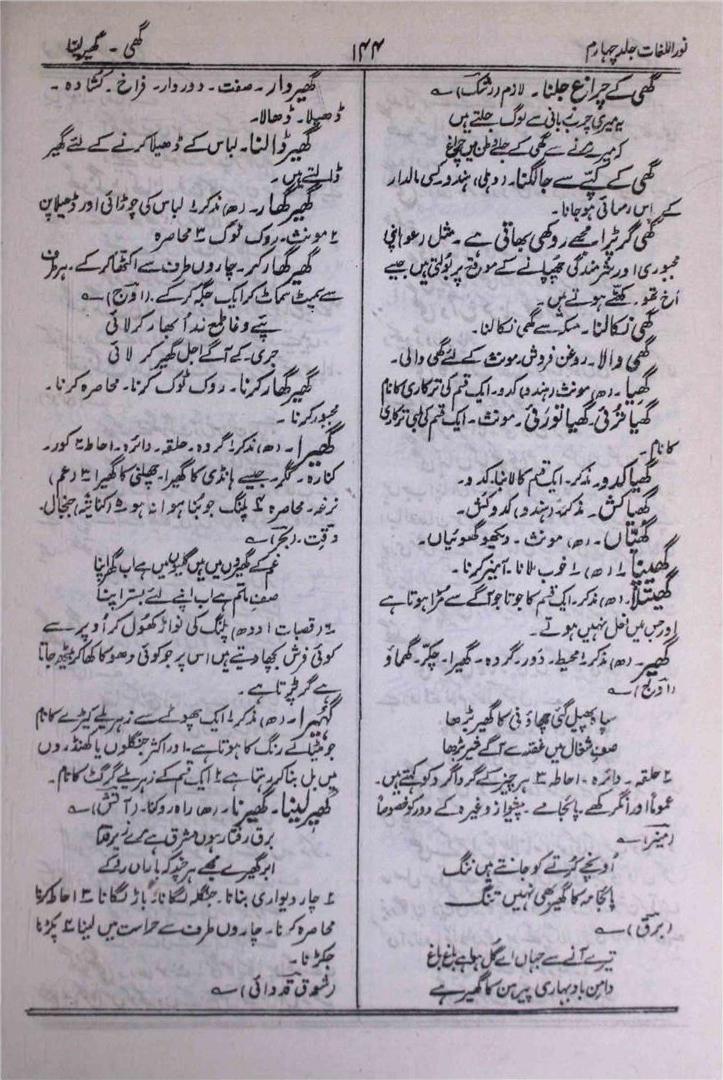 نور اللغات جلد چہارم
۱۴۴
گھی - گھیر لینا
گھی کے چراغ جلنا۔ لازم (رشک) ؎
یہ میری چرب بانی سے لوگ جلتے ہیں
کہ میرے مرنے سے گھی کے جلے وطن میں چراغ
گھی کے کپّے سے جا لگنا۔ (دہلی، ہندو) کسی مالدار
کے پاس رسائی ہو جانا۔
گھی گر پڑا مجھے روکھی بھاتی ہے۔ مثل (عو) اپنی
مجبوری اور شرمندگی چھپانے کے موقع پر بولتی ہیں جیسے
اَخ تھو۔ کھٹے ہوتے ہیں۔
گھی نکالنا۔ مسکہ سے گھی نکالنا۔
گھی والا۔ روغن فروش۔ مونث کے لئے گھی والی۔
گھِیا۔ (ھ) مونث (ہندو) کدو۔ ایک قسم کی ترکاری کا نام
گھیا تُرئی۔ گھیا نورئی۔ مونث۔ ایک قسم کی لمبی ترکاری
کا نام۔
گھیا کدو۔ مذکر۔ ایک قسم کا لانبا کدو۔
گھیا کش۔ مذکر۔ (ہندو) کدو کش۔
گھُیّاں۔ (ھ) مونث۔ دیکھو گھوئیاں۔
گھیپنا۔ (ھ) ۱ خوب ملانا۔ آمیز کرنا۔
گھیتلا۔ (ھ) مذکر۔ ایک قسم کا جوتا جو آگے سے مڑا ہوتا ہے
اور جس میں نعل نہیں ہوتے۔
گھیر۔ (ھ) مذکر ۱ محیط۔ دَور۔ گردہ۔ گھیرا۔ چکر۔ گھماؤ
(اوج) ؎
سپاہ پھیل گئی چھاؤنی کا گھیر بڑھا
صفِ شغال میں غصہ سے آگے شیر بڑھا
۲ حلقہ۔ دائرہ۔ احاطہ ۳ ہر چیز کے گرداگرد کو کہتے ہیں۔
عموماً اور انگرکھے۔ پائجامے۔ پیشواز وغیرہ کے دور کو خصوصاً
(منیر) ؎
اُونچے کُرتے کو جانتے ہیں ننگ
پائجامہ کا گھیر بھی نہیں تنگ
(برق) ؎
تیرے آنے سے جہاں اے گل ہوا ہے باغ باغ
دامنِ باد بہاری پیرہن کا گھیر ہے
گھیر دار۔ صفت۔ دور دار۔ فراخ۔ کشادہ۔
ڈھیلا۔ ڈھالا۔
گھیر ڈالنا۔ لباس کے ڈھیلا کرنے کے لئے گھیر
ڈالتے ہیں۔
گھیر گھار۔ (ھ) مذکر ۱ لباس کی چوڑائی اور ڈھیلا پن
۲ مونث۔ روک ٹوک ۳ محاصرہ
گھیر گھار کر۔ چاروں طرف سے اکٹھا کر کے۔ ہر طرف
سے سمیٹ سماٹ کر ایک جگہ کر کے۔ (اوج) ؎
جری کے آگے اجل گھیر کر لائی
گھیر گھار کرنا۔ روک ٹوک کرنا۔ محاصرہ کرنا۔
مجبور کرنا۔
گھیرا۔ (ھ) مذکر ۱ گردہ۔ حلقہ۔ دائرہ۔ احاطہ ۲ کور۔
کنارہ۔ گگر۔ جیسے ہانڈی کا گھیرا۔ چھلنی کا گھیرا ۳ (عم)
نرغہ۔ محاصرہ ۴ پلنگ جو بُنا ہوا نہ ہو ۵ (کنایۃً) جنجال۔
دقت۔ (بحر) ؎
غم کے گھیروں میں ہیں گلیوں میں ہے اب گھر اپنا
صفِ ماتم ہے اب اپنے لئے بستر اپنا
۶ (قصبات اودھ) پلنگ کی نواڑ کھول کر اُوپر سے
کوئی فرش بچھا دیتے ہیں اس پر جو کوئی دھوکا کھا کر بیٹھ جاتا
ہے گر پڑتا ہے۔
گھیرا۔ (ھ) مذکر ۱ ایک چھوٹے سے زہریلے کیڑے کا نام
جو مٹیالے رنگ کا ہوتا ہے۔ اور اکثر جنگلوں یا کھنڈروں
میں بل بنا کر رہتا ہے ۲ ایک قسم کے زہریلے گرگٹ کا نام۔
گھیر لینا۔ گھیرنا۔ (ھ) راہ روکنا۔ (آتش) ؎
ابر گھیرے مجھے ہر چند کہ باراں روکے
۲ چار دیواری بنانا۔ جنگلہ لگانا۔ باڑ لگانا ۳ احاطہ کرنا
محاصرہ کرنا۔ چاروں طرف سے حراست میں لینا ۴ پکڑنا
جکڑنا۔
(شوق قدوائی) ؎